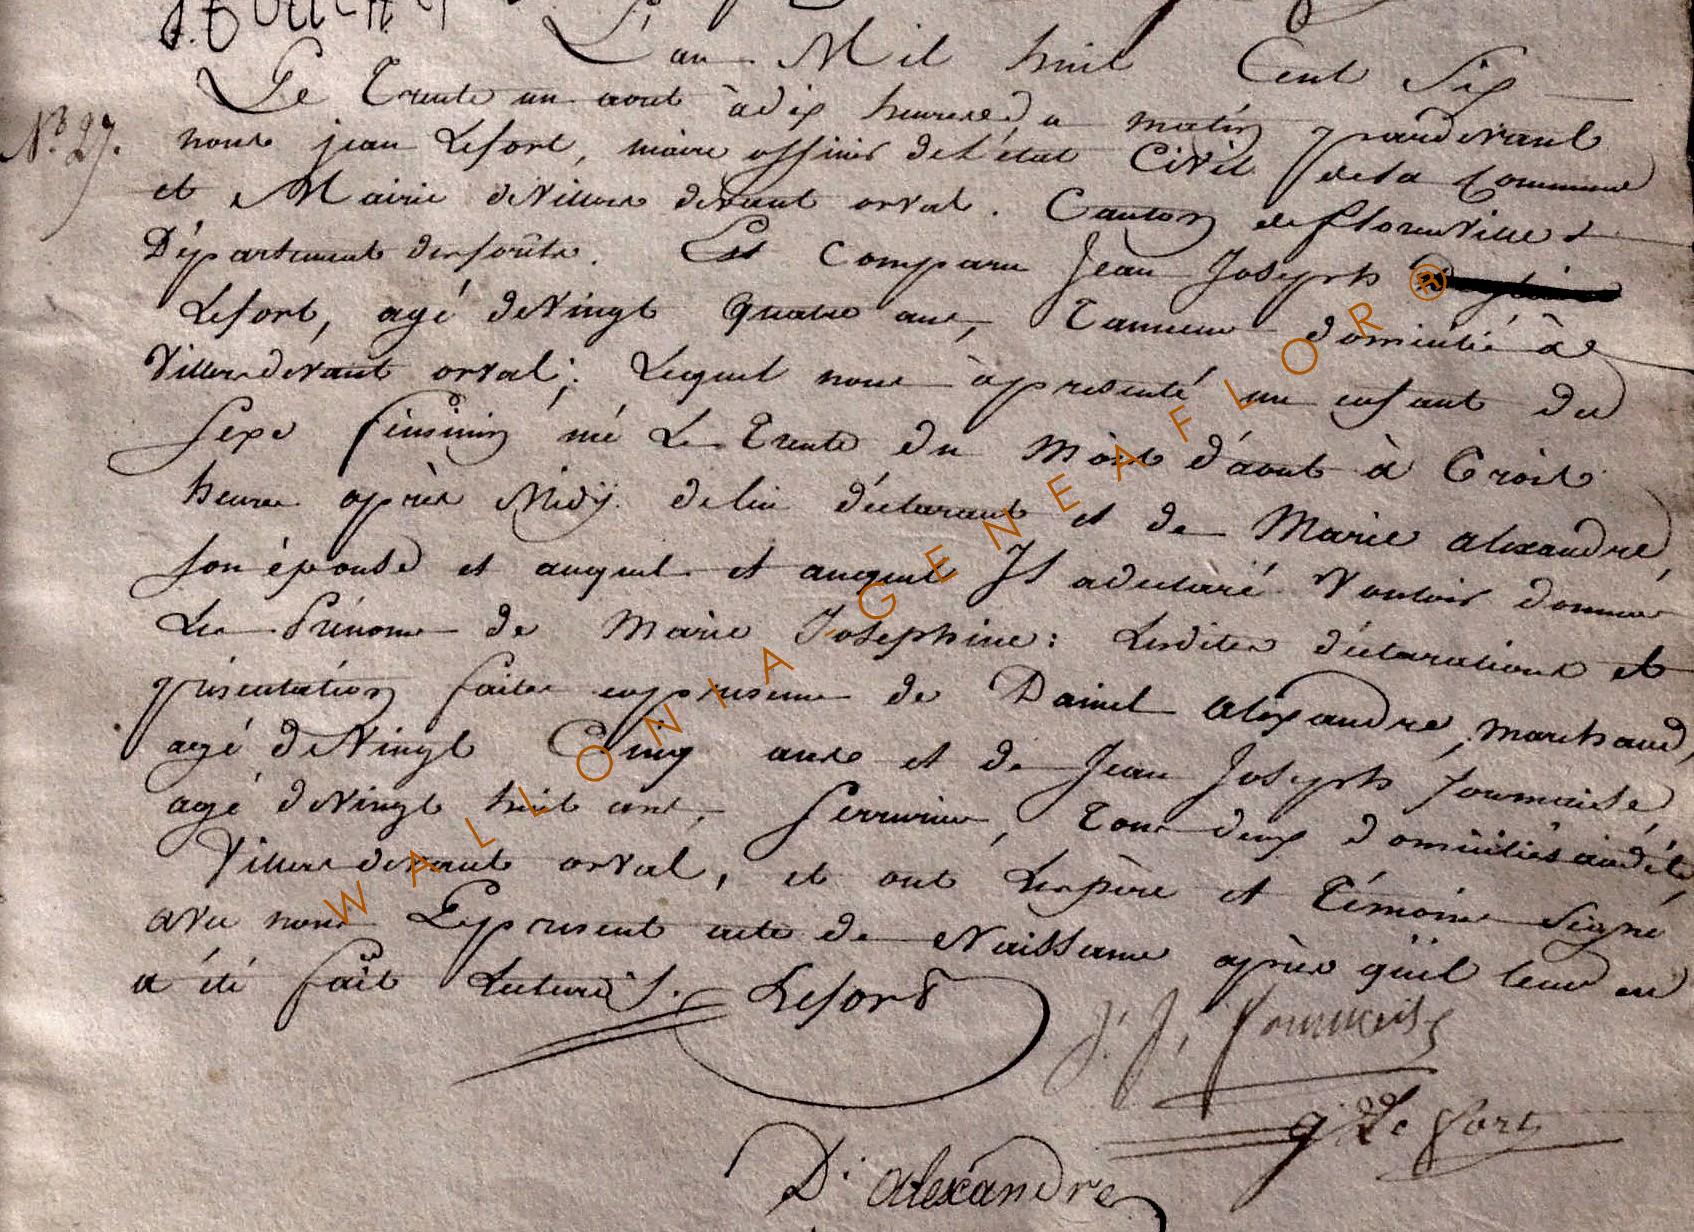 L'an Mil huit Cent Six
Le Trente un aout à dix heures du matin pardevant
N.o 27. nous jean Lefort, maire officier de l'état Civil de la Commune
et Mairie de Villers devant orval. Canton de florenville
Département des forêts. Est comparu Jean Joseph
Lefort, agé de Vingt quatre ans, Tanneur domicilié à
Villers devant orval; Lequel nous à presenté un enfant du
sexe feminin né Le Trente du Mois d'aout à Trois
heures après Midÿ de lui déclarant et de Marie alexandre,
son épouse et auquel et auquel Il a déclaré Vouloir donner
Les Prénoms de Marie Josephine: Lesdites déclarations et
présentation faites en presence de Daniel alexandre, marchand,
agé de Vingt Cinq ans et de Jean Joseph
agé de Vingt huit ans, Serrurier, Tous deux domiciliés audit
Villers devant orval, et ont Les père et Témoins Signé
avec nous Le present acte de Naissance après qu'il leur en
a été fait Lecture./.
Lefort
J. J.
Le fort
D. alexandre
WALLONIA-GENEAFLOR®